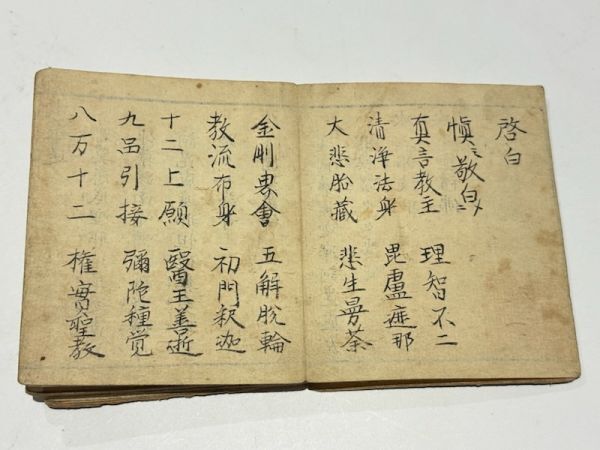 啓白
慎ミ敬白
真言教主 理智不二
清浄法身 毘盧遮那
大悲胎藏 悲生曼荼
金剛界會 五解脱輪
教流布身 初門釈迦
十二上願 醫王善逝
九品引接 彌陀種覚
八万十二 権實聖教